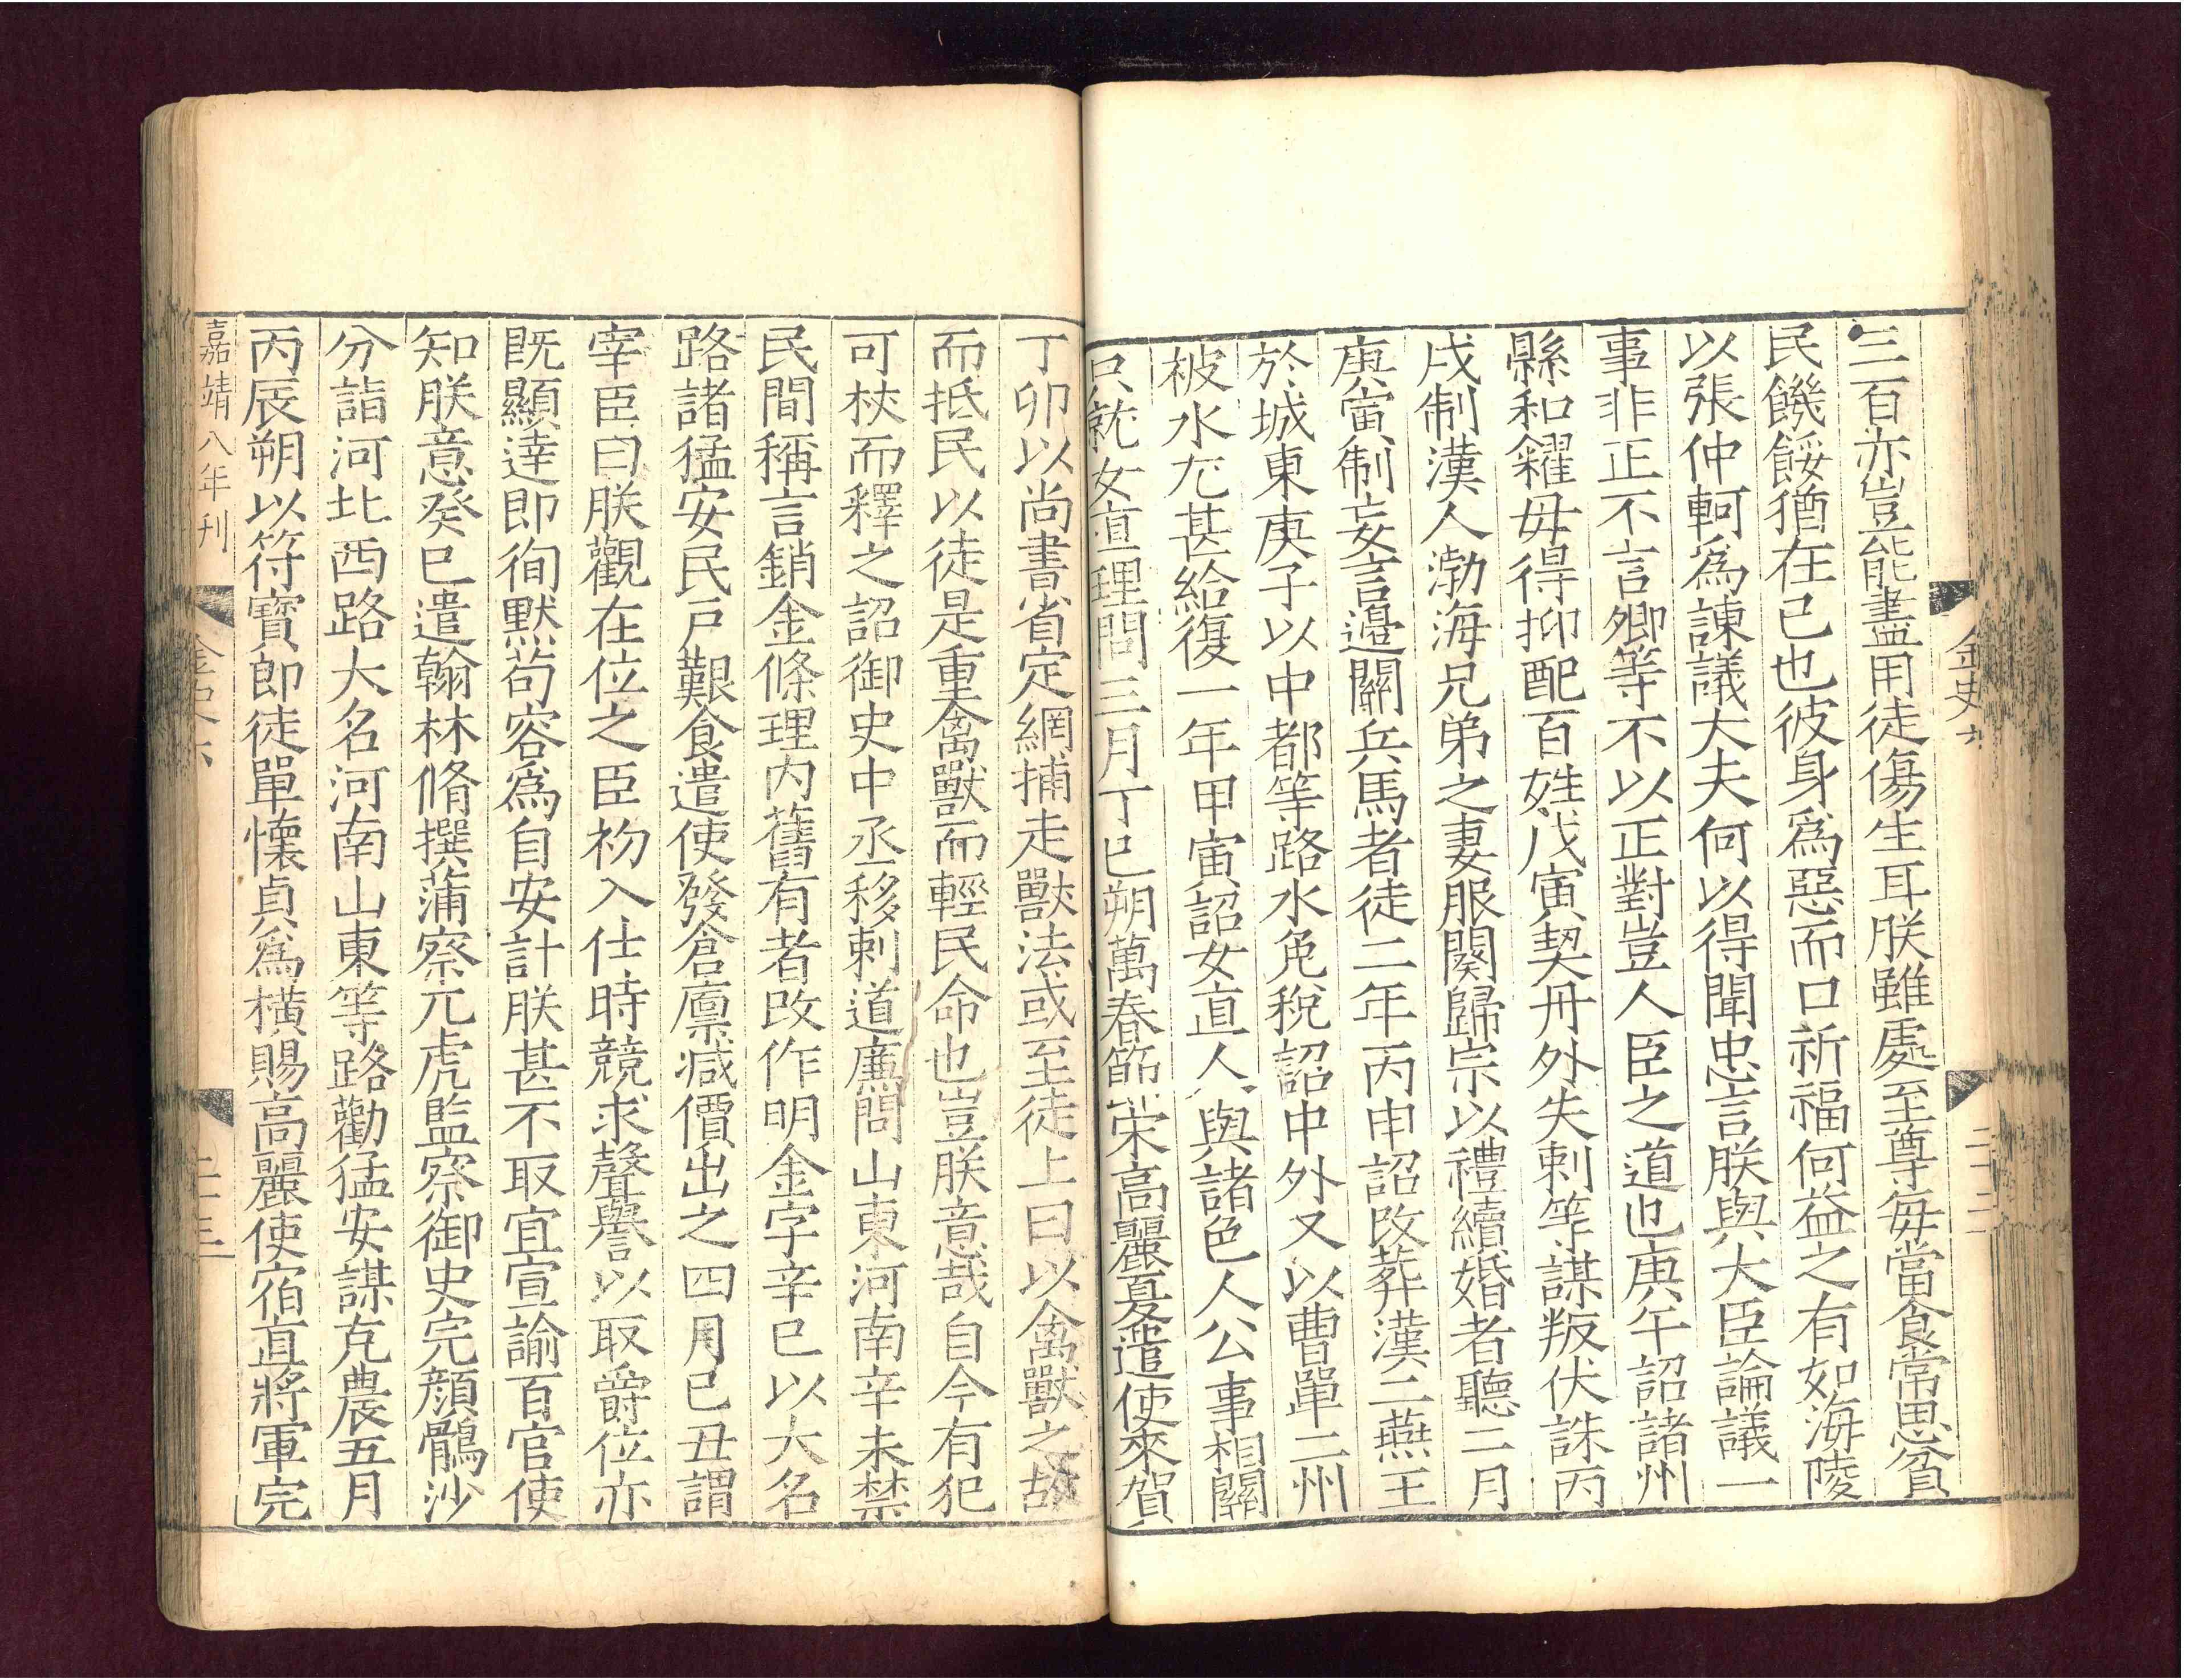 三百亦豈能盡用徒傷生耳朕雖處至尊每當食常思貧
民饑餒猶在己也彼身爲惡而口祈福何益之有如海陵
以張仲軻爲諫議大夫何以得聞忠言朕與大臣論議一
事非正不言卿等不以正對豈人臣之道也庚午詔諸州
縣和糴毋得抑配百姓戊寅契丹外失剌等謀叛伏誅丙
戌制漢人渤海兄弟之妻服闋歸宗以禮續婚者聽二月
庚寅制妄言邊關兵馬者徒二年丙申詔改葬漢二燕王
於城東庚子以中都等路水免稅詔中外又以曹單二州
被水尤甚給復一年甲寅詔女直人與諸色人公事相關
只就女直理問三月丁巳朔萬春節宋高麗夏遣使來賀
丁卯以尚書省定網捕走獸法或至徒上曰以禽獸之故
而抵民以徒是重禽獸而輕民命也豈朕意哉自今有犯
可杖而釋之詔御史中丞移剌道廉問山東河南辛未禁
民間稱言銷金條理内舊有者改作明金字辛巳以大名
路諸猛安民戶艱食遣使發倉廩减價出之四月己丑謂
宰臣曰朕觀在位之臣初入仕時競求聲譽以取爵位亦
旣顯達即徇默苟容爲自安計朕甚不取宜宣諭百官使
知朕意癸巳遣翰林脩撰蒲察兀虎監察御史完顔鶻沙
分詣河北西路大名河南山東等路勸猛安謀克農五月
丙辰朔以符寶郎徒單懷貞爲橫賜高麗使宿直將軍完
嘉靖八年刊 金史六 二十三